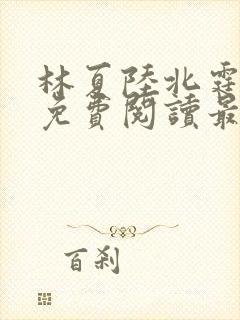 林夏陸北霆
免費閱讀最
百刹